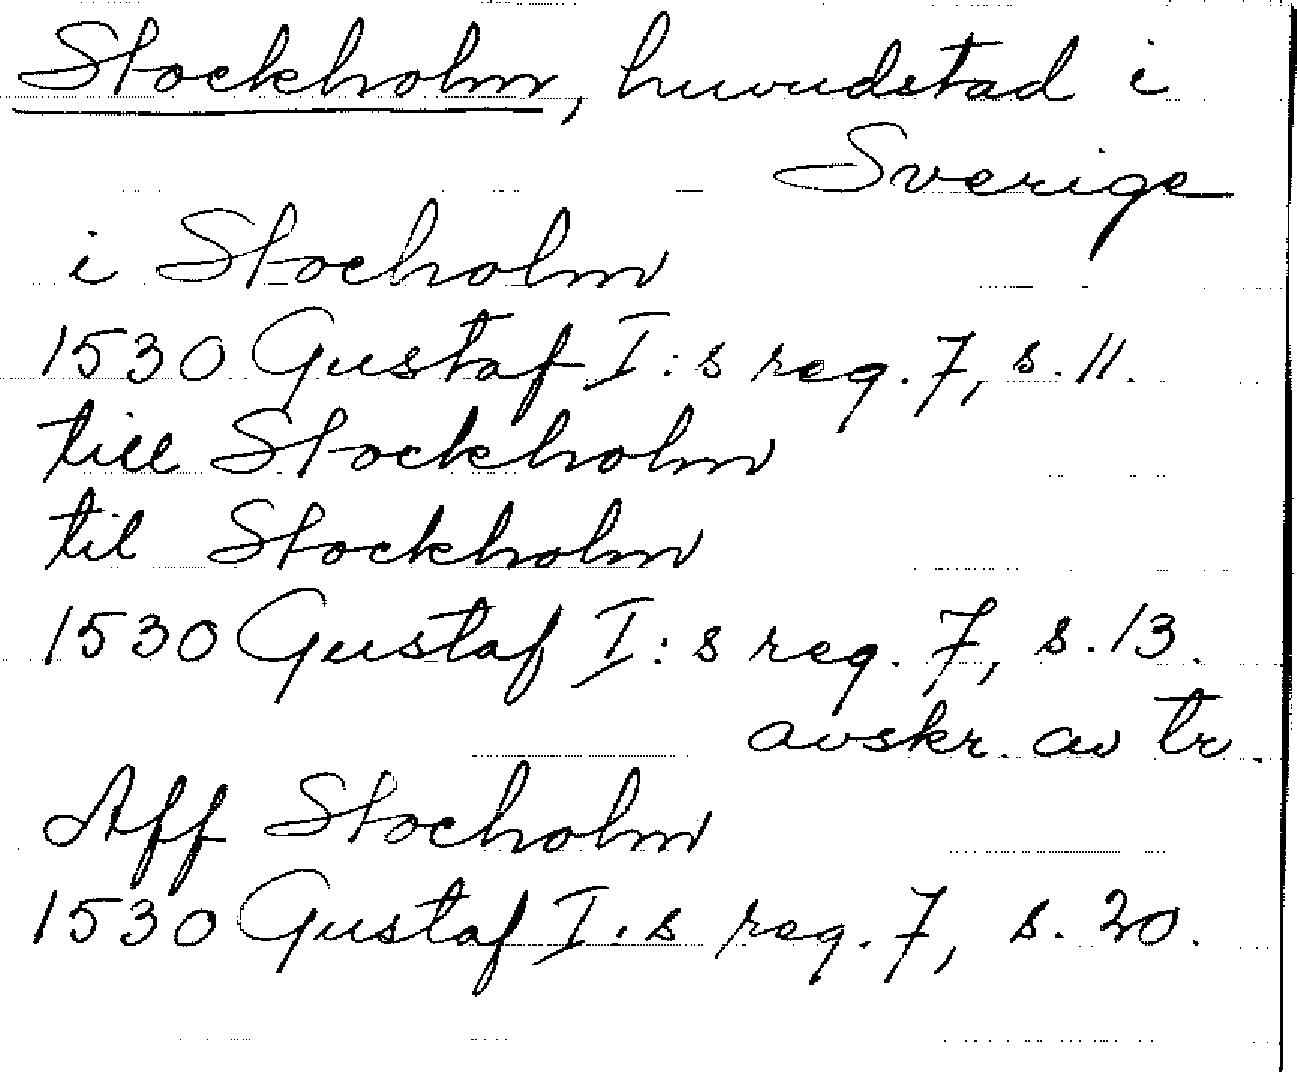 Stockholm, huvudstad i
Sverige
i Stocholm
1530 Gustaf I:s reg. 7, s. 11.
till Stockholm
til Stockholm
1530 Gustaf I:s reg. 7, s. 13.
avskr. av tr.
Aff Stocholm
1530 Gustaf I:s reg. 7, s. 20.